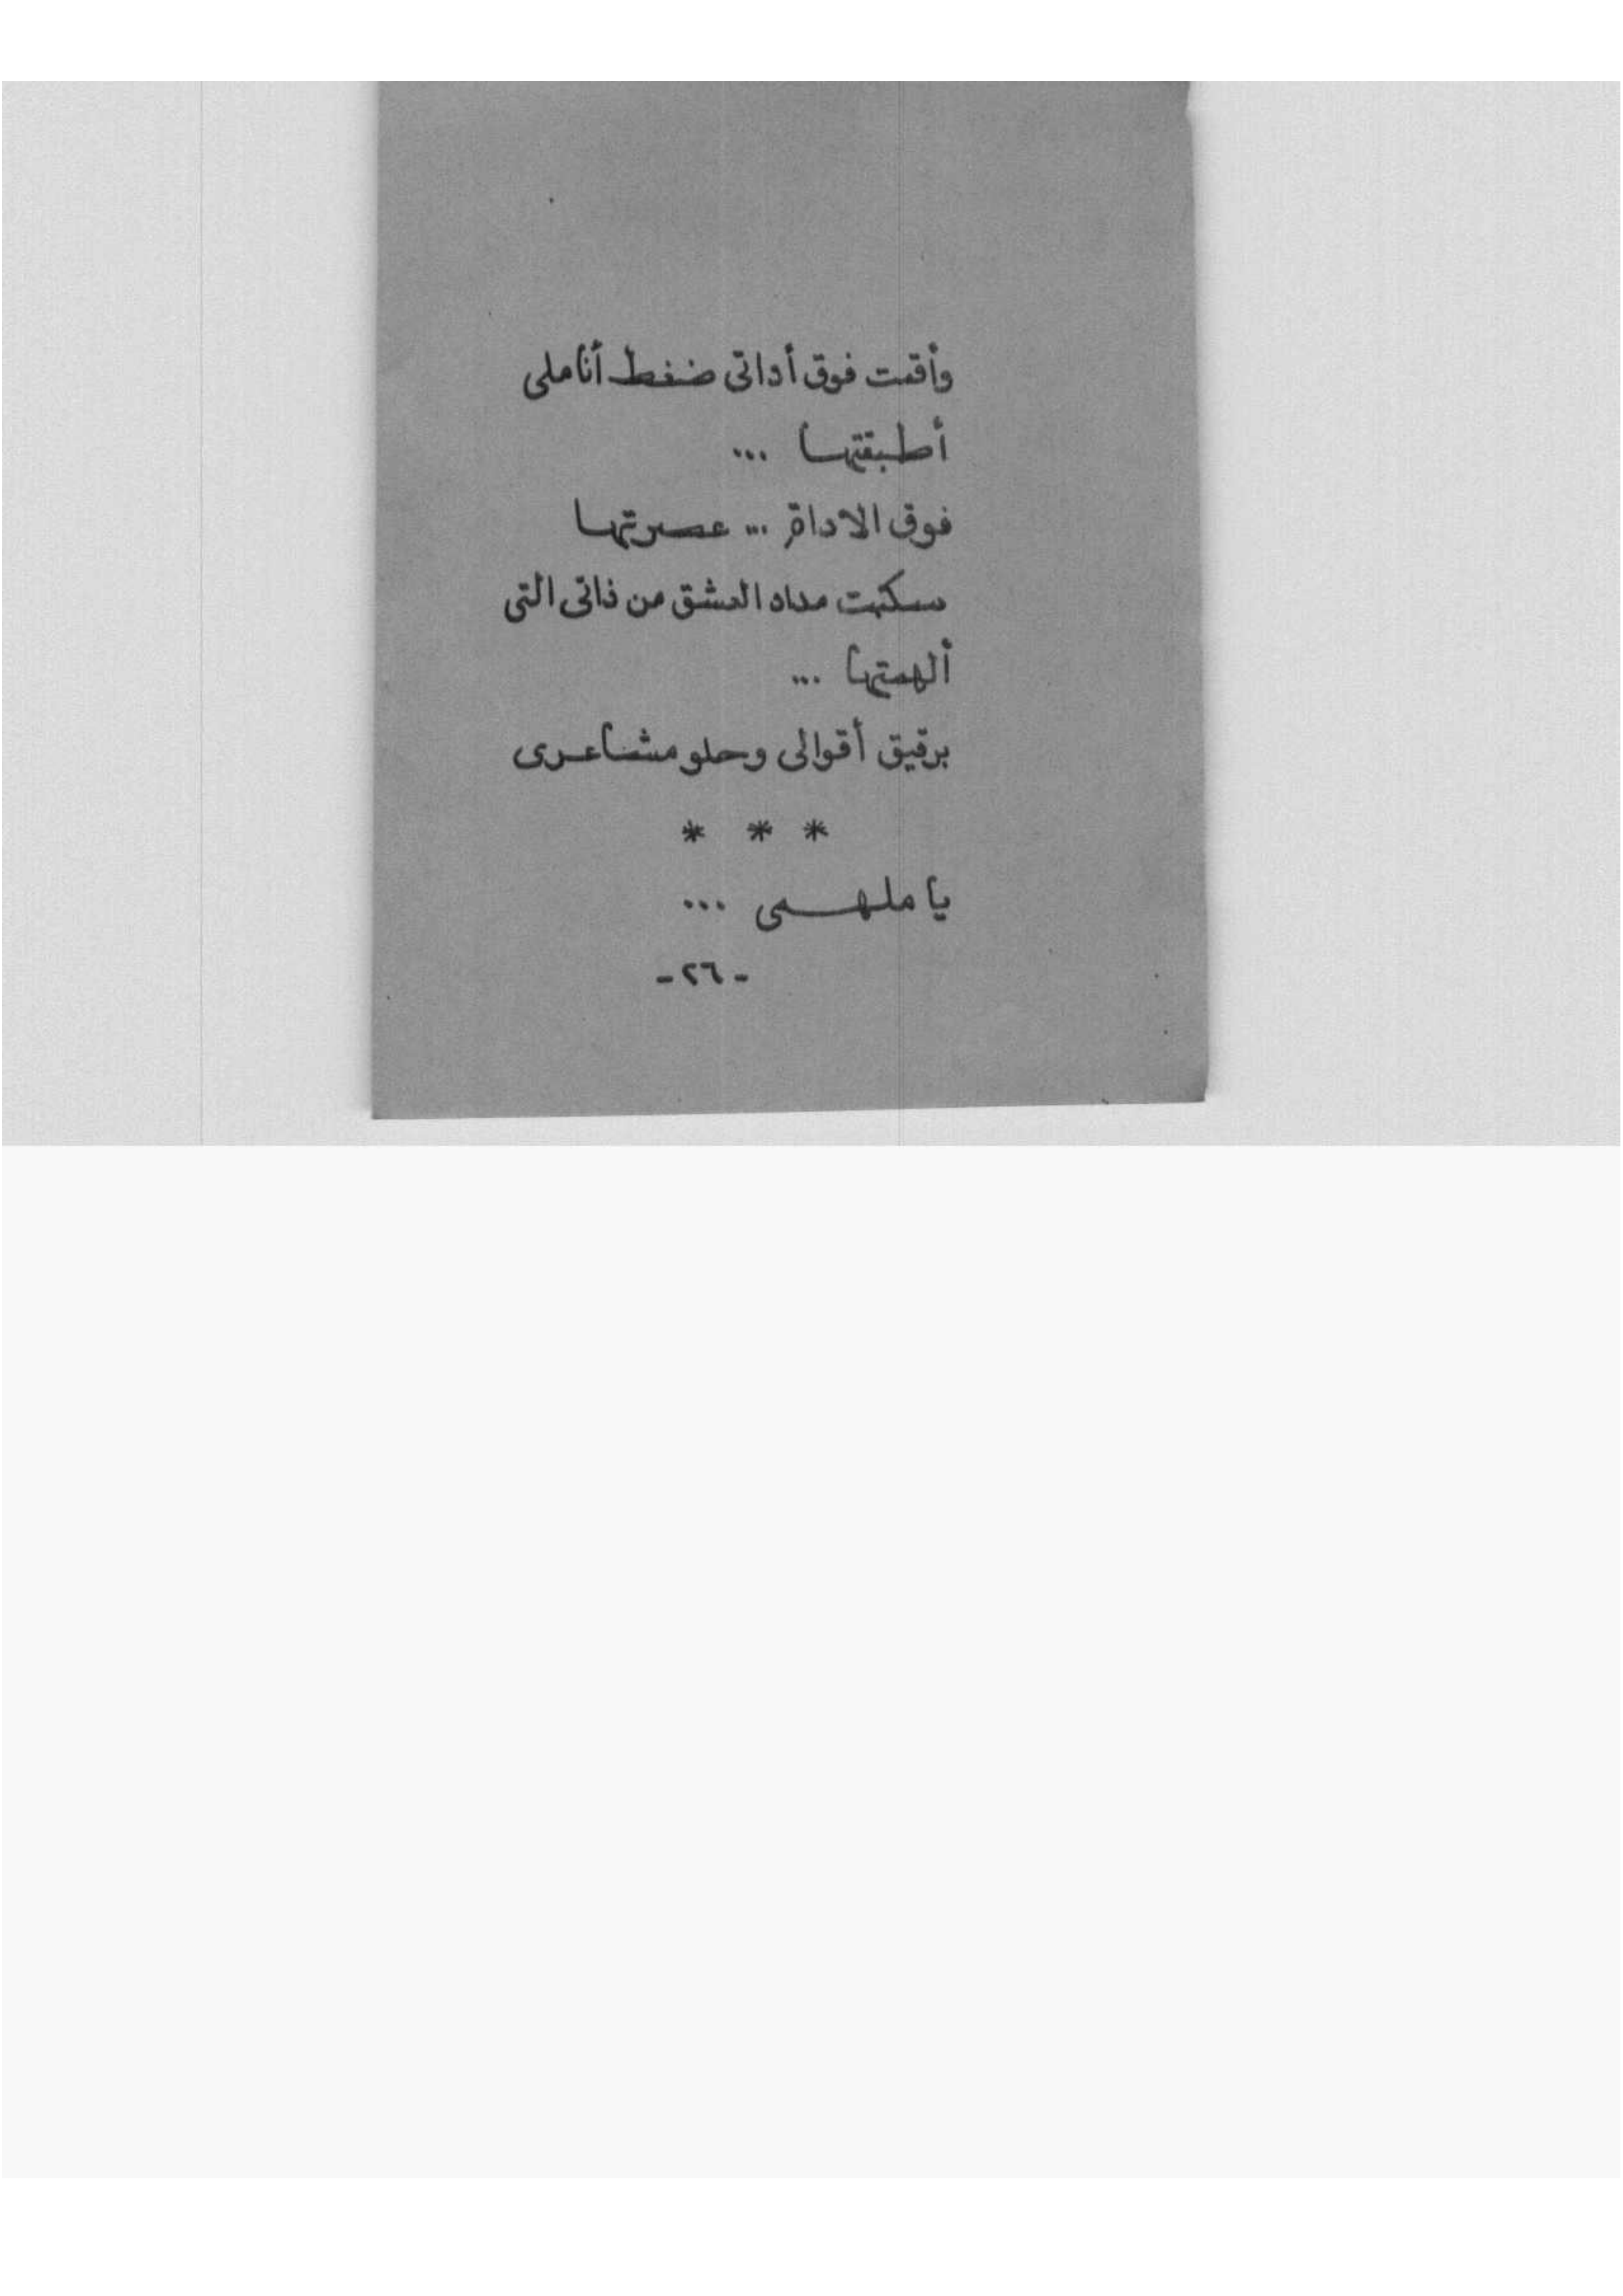 وأقمت فوق أداتى ضغط أناملى
أطبقتها ...
فوق الاداة ... عصرتها
سكبت مداد العشق من ذاتى التى
ألهمتها ...
برقيق أقوالى وحلو مشاعرى
* * *
يا ملهمى ...
- ٢٦ -